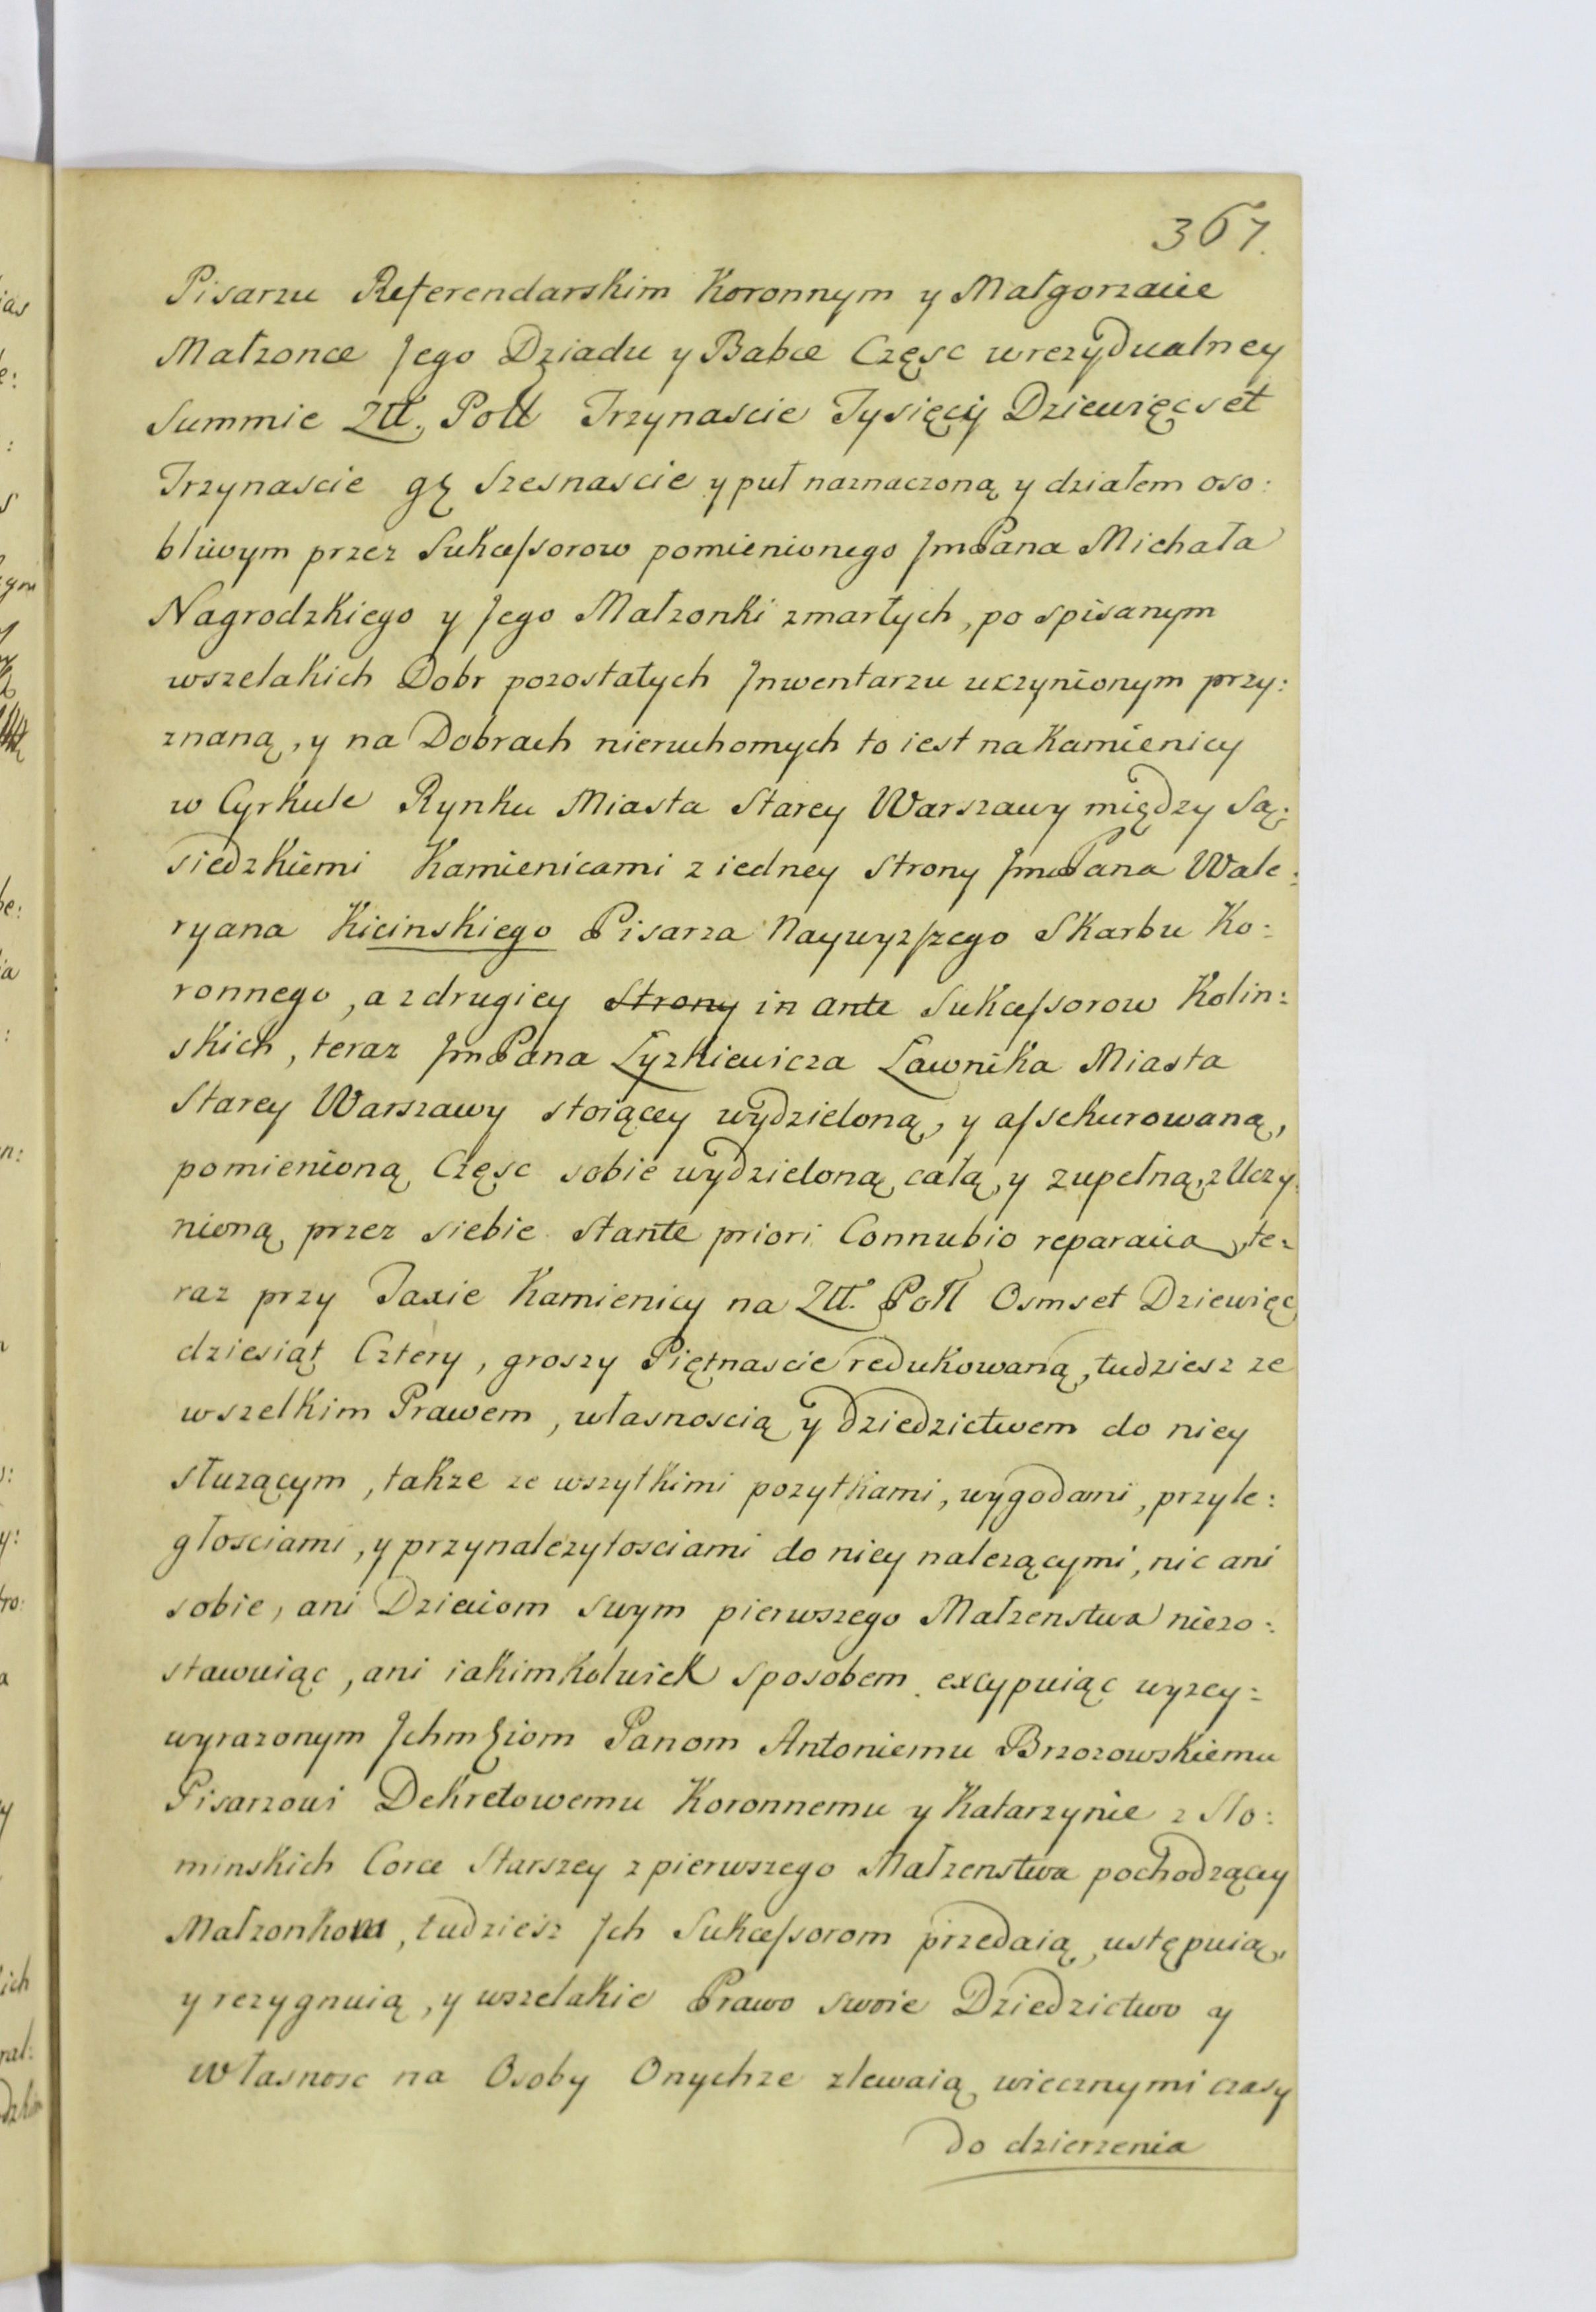 367.
Pisarzu Referendarskim Koronnym y Małgorzacie
Małzonce Jego Dziadu y Babce Częsc w rezydualney
Summie Złł. Poll Trzynascie Tysięcy Dziewięcset
Trzynascie gę Szesnascie y puł naznaczoną y działem oso:
bliwym przez Sukcessorow pomienionego JmPana Michała
Nagrodzkiego y Jego Małzonki zmarłych, po spisanym
wszelakich Dobr pozostałych Jnwentarzu uczynionym przy:
znaną, y na Dobrach nieruchomych to iest na Kamienicy
w Cyrkule Rynku Miasta Starey Warszawy między Są:
siedzkiemi Kamienicami z iedney Strony JmPana Wale:
ryana Kicinskiego Pisarza Naywyzszego Skarbu Ko:
ronnego, a z drugiey Strony in ante Sukcessorow Kolin:
skich, teraz JmPana Łyzkiewicza Ławnika Miasta
Starey Warszawy stoiącey wydzieloną, y assekurowaną,
pomienioną Częsc sobie wydzieloną całą, y zupełną, z Uczy:
nioną przez siebie stante priori Connubio reparacią, te:
raz przy Taxie Kamienicy na Złł. Poll Osmset Dziewięc
dziesiąt Cztery, groszy Piętnascie redukowaną, tudziesz ze
wszelkim Prawem, własnoscią y dziedzictwem do niey
słuzącym, takze ze wszytkimi pozytkami, wygodami, przyle:
głosciami, y przynalezytosciami do niey nalezącymi, nic ani
sobie, ani Dzieciom swym pierwszego Małzenstwa niezo:
stawuiąc, ani iakimkolwiek sposobem excypuiąc wyzey:
wyrazonym Jchmęiom Panom Antoniemu Brzozowskiemu
Pisarzowi Dekretowemu Koronnemu y Katarzynie z Sło:
minskich Corce Starszey z pierwszego Małzenstwa pochodzącey
Małzonkom, tudziesz Jch Sukcessorom przedaią, ustępuią,
y rezygnuią, y wszelakie Prawo swoie Dziedzictwo y
Własnosc na Osoby Onychze zlewaią wiecznymi czasy
do dzierzenia